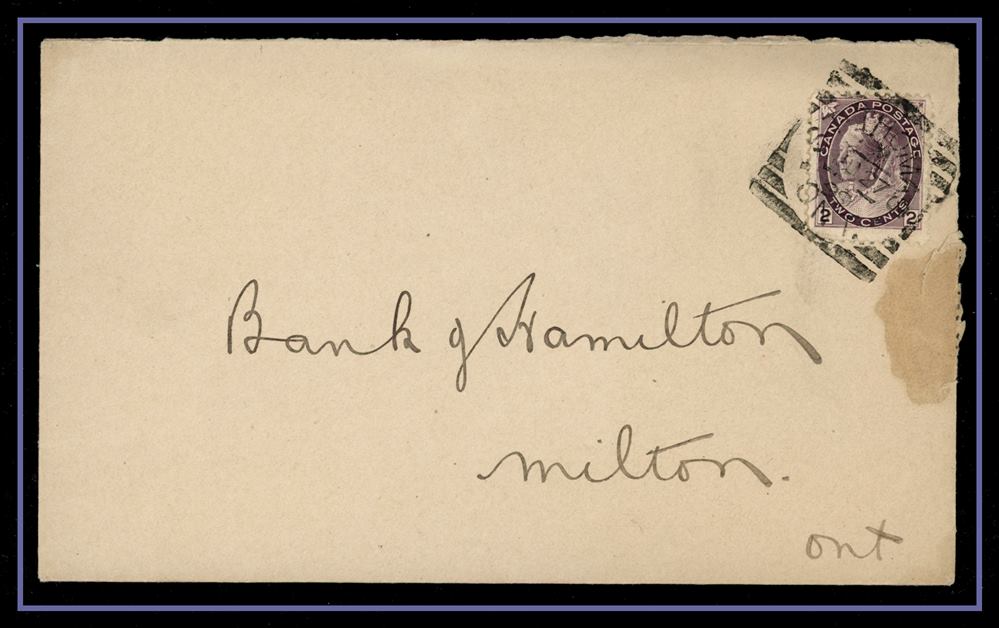 CANADA POSTAGE
2 TWO CENTS 2
Bank of Hamilton
Milton.
ont